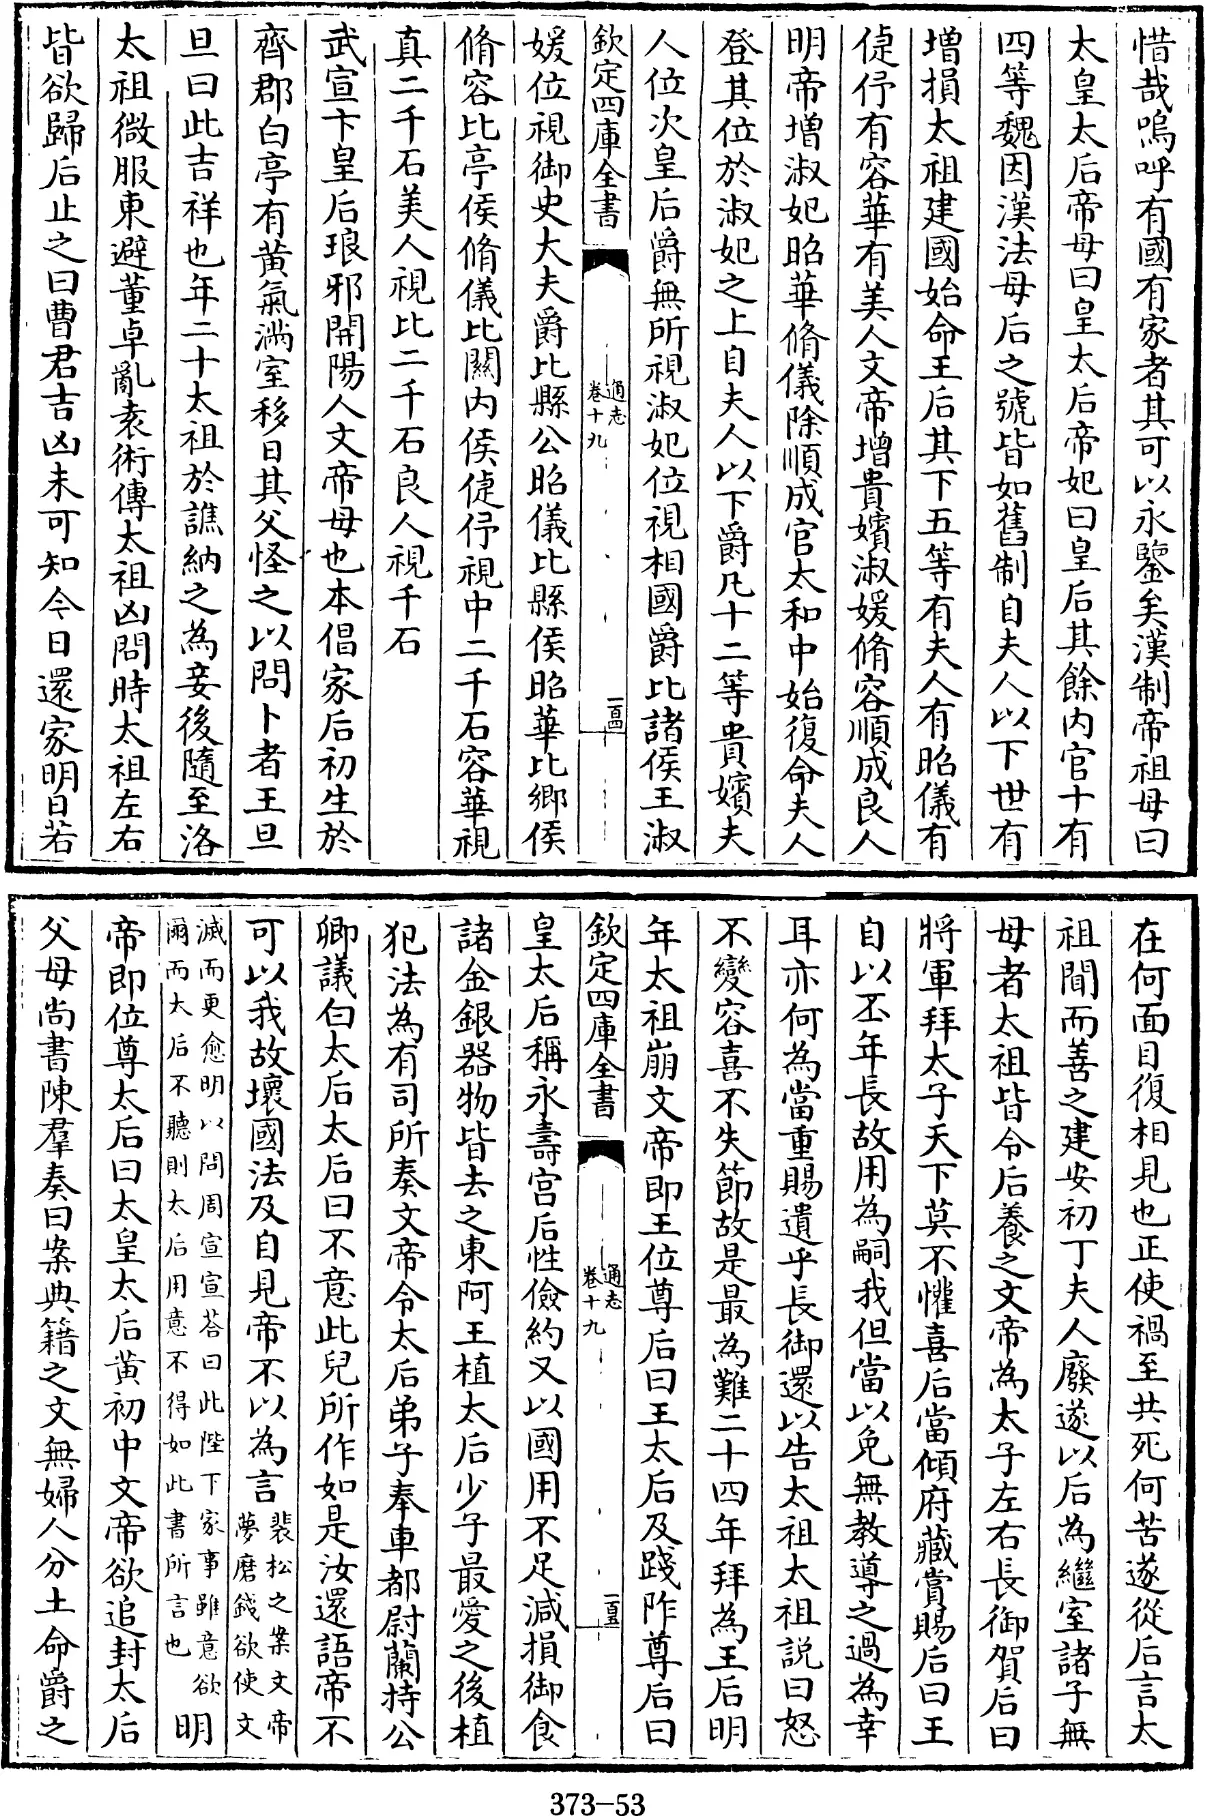 惜哉嗚呼有國有家者其可以永鑒矣漢制帝祖母曰
太皇太后帝母曰皇太后帝妃曰皇后其餘内官十有
四等魏因漢法母后之號皆如舊制自夫人以下世有
增損太祖建國始命王后其下五等有夫人有昭儀有
倢伃有容華有美人文帝增貴嬪淑媛脩容順成良人
明帝增淑妃昭華脩儀除順成官太和中始復命夫人
登其位於淑妃之上自夫人以下爵凡十二等貴嬪夫
人位次皇后爵無所視淑妃位視相國爵比諸侯王淑
欽定四庫全書
通志
卷十九
一百四
媛位視御史大夫爵比縣公昭儀比縣侯昭華比鄉侯
脩容比亭侯脩儀比關内侯倢伃視中二千石容華視
真二千石美人視比二千石良人視千石
武宣卞皇后琅邪開陽人文帝母也本倡家后初生於
齊郡白亭有黄氣滿室移日其父怪之以問卜者王旦
旦曰此吉祥也年二十太祖於譙納之為妾後隨至洛
太祖微服東避董卓亂袁術傳太祖凶問時太祖左右
皆欲歸后止之曰曹君吉凶未可知今日還家明日若
在何面目復相見也正使禍至共死何苦遂從后言太
祖聞而善之建安初丁夫人廢遂以后為繼室諸子無
母者太祖皆令后養之文帝為太子左右長御賀后曰
將軍拜太子天下莫不懽喜后當傾府藏賞賜后曰王
自以丕年長故用為嗣我但當以免無教導之過為幸
耳亦何為當重賜遺乎長御還以告太祖太祖説曰怒
不變容喜不失節故是最為難二十四年拜為王后明
年太祖崩文帝即王位尊后曰王太后及踐阼尊后曰
欽定四庫全書
通志
卷十九
一百五
皇太后稱永壽宫后性儉約又以國用不足減損御食
諸金銀器物皆去之東阿王植太后少子最愛之後植
犯法為有司所奏文帝令太后弟子奉車都尉蘭持公
卿議白太后太后曰不意此兒所作如是汝還語帝不
可以我故壞國法及自見帝不以為言裴松之案文帝
夢磨錢欲使文
滅而更愈明以問周宣宣荅曰此陛下家事雖意欲
爾而太后不聽則太后用意不得如此書所言也明
帝即位尊太后曰太皇太后黄初中文帝欲追封太后
父母尚書陳羣奏曰案典籍之文無婦人分土命爵之
373-53